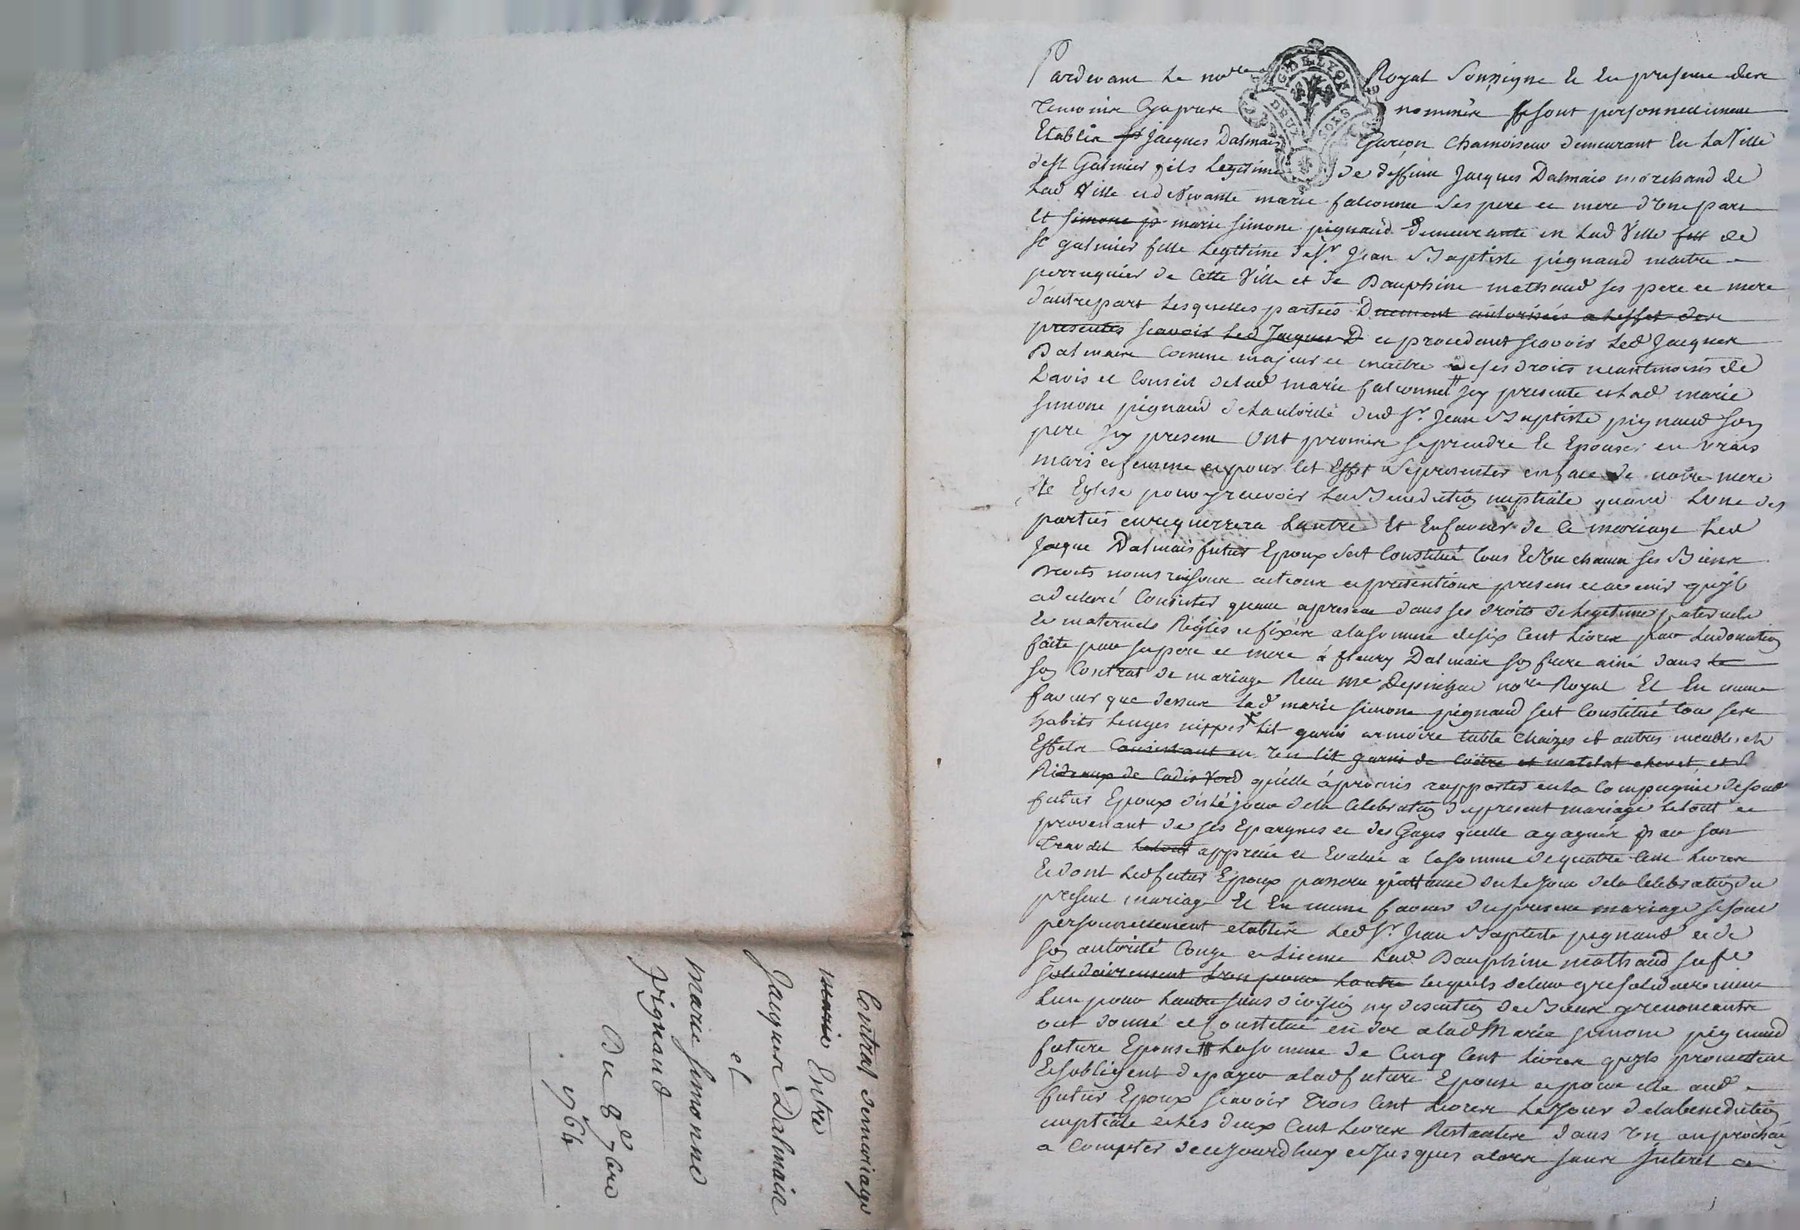 Pardevant Le no.re Royal Soussigne Et En presence des
temoins Cyapres nommés se sont personnellement
Etablis Jacques Dalmais Garçon Chamoiseur demeurant En La Ville
de st Galmier fils Legitime de deffunt Jacques Dalmais marchand de
Lad Ville et de vivante marie falconnet Ses pere et mere d'une part
Et simone p marie Simone pignaud demeurante en Lad Ville fill de
st galmier fille Legitime de Sr. Jean Baptiste pignaud maitre
perruquier de Cette Ville et de Dauphine mathaud ses pere et mere
d'autre part Lesquelles parties Duement autorisées a Leffet des
presentes scavoir Led Jacques D et procedant scavoir Led Jacques
Dalmais Comme majeur et maitre de ses droits neantmoins de
Lavis et Conseil de Lad marie falconnet Icy presente et Lad marie
Simone pignaud de Lautorité dud Sr. Jean Baptiste pignaud Son
pere Icy present Ont promis se prendre Et Epouser en vrais
mari et femme et pour Cet Effet Se presenter en face de notre mere
Ste Eglise pour y recevoir La Benediction nuptiale quand Lune des
parties en requerrera Lautre Et En faveur de Ce mariage Led
Jacque Dalmais futur Epoux Sest Constitué tous Et Un chacun ses Biens
Droits noms raisons actions et pretentions presens et avenir quil
a declaré Consister quant apresent dans ses droits de Legitime paternels
Et maternels Réglés et fixés a la somme de six Cent Livres par La donation
faite par ses pere et mere à fleury Dalmais son frere ainé dans Le
Son Contrat de mariage Reçu Me no.re Royal Et En meme
faveur que dessus Lad marie Simone pignaud sest Constitué tous ses
habits Linges nippes Lit garni armoire table Chaizes et autres meubles et
Effets Consistant en Un lit garni de Coëtre et matelat chevet et
Rideaux de Cadis Verd qu'elle à promis rapporter en la Compagnie de sond
futur Epoux dici le jour de la Celebration du present mariage Le tout
provenant de ses Epargnes et des Gages quelle a gagnés par son
travail Letout apprecié et Evalué a la somme de quatre Cent Livres
Et dont Led futur Epoux passera quittance du Le jour de la Celebration du
present mariage Et En meme faveur du present mariage se sont
personnellement etablis Led Sr. Jean Baptiste pignaud et de
Son autorité Congé et Licence Lad. Dauphine mathaud sa fe.
Solidairement Lun pour Lautre Lesquels de Leur gré solidairement
Lun pour Lautre sans division ny discution de Biens y renoncants
ont donné et Constitué en dot a lad Marie Simone pignaud
future Epouse La somme de Cinq Cent Livres quils promettent
Et sobligent de payer a lad future Epouse et pour elle aud
futur Epoux scavoir Trois Cent Livres Le Jour de la benediction
nuptiale et Les deux Cent Livres Restantes dans Un an prochain
a Compter de ce jourdhuy et Jusques alors sans Interet
G. DE LYON
DEUX SOLS
Contrat de mariage
Entre
Jacques Dalmais
et
marie Simonne
pignaud
Du 8e 7bre
1764